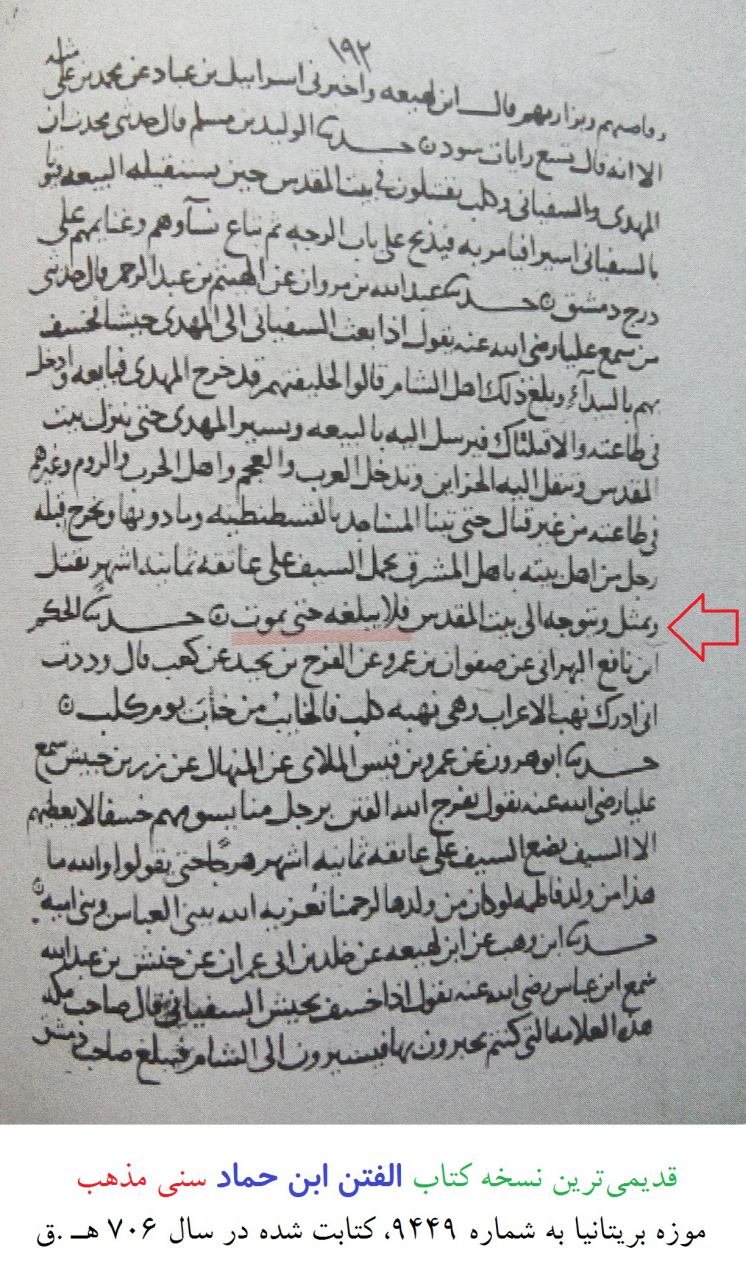 ١٩٢
وناصيتهم وبزارهم قال ابن لهيعة واخبرني اسرابيل بن عباد عن محمد بن علي مثله
الا انه قال تسع رايات سود ن حدثنا الوليد بن مسلم قال حدثني محدث ان
المهدي والسفياني وكلب يقتتلون في بيت المقدس حين يستقيله البيعه فيؤتا
بالسفياني اسيرا فيامر به فيذبح على باب الرحبه ثم تباع نسآوهم وغنايمهم على
درج دمشق ن حدثنا عبد الله بن مروان عن الهيثم بن عبد الرحمن قال حدثني
من سمع عليا رضي الله عنه يقول اذا بعث السفياني الى المهدي جيشا فخسف
بهم بالبيدآء وبلغ ذلك اهل الشام قالوا لخليفتهم قد خرج المهدي فبايعه وادخل
في طاعته والا قتلناك فيرسل اليه بالبيعه ويسير المهدي حتى ينزل بيت
المقدس وتنقل اليه الخزاين وتدخل العرب والعجم واهل الحرب والروم وغيرهم
في طاعته من غير قتال حتى تبنا المساجد بالقسطنطينه وما دونها ويخرج قبله
رجل من اهل بيته باهل المشرق يحمل السيف على عاتقه ثمانيه اشهر يقتل
ويمثل ويتوجه الى بيت المقدس فلا يبلغه حتى يموت ن حدثنا الحكم
ابن نافع البهراني عن صفوان بن عمرو عن الفرج بن يحمد عن كعب قال وددت
اني ادرك نهب الاعراب وهي نهبه كلب فالخايب من خاب يوم كلب ن
حدثنا ابو هرون عن عمرو بن قيس الملاي عن المنهال عن زر بن حبيش سمع
عليا رضي الله عنه يقول يفرج الله الفتن برجل منا يسومهم خسفا لا يعطيهم
الا السيف يضع السيف على عاتقه ثمانيه اشهر هرجا حتى يقولوا والله ما
هذا من ولد فاطمه لو كان من ولدها لرحمنا يغزيه الله ببني العباس وبني اميه ن
حدثنا ابن وهب عن ابن لهيعه عن خلد بن ابي عمران عن حنش بن عبد الله
سمع ابن عباس رضي الله عنه يقول اذا خسف بجيش السفياني قال صاحب مكه
هذه العلامه التي كنتم تخبرون بها فيسيرون الى الشام فيبلغ صاحب دمشق
قدیمی‌ترین نسخه کتاب الفتن ابن حماد سنی مذهب
موزه بریتانیا به شماره ۹۴۴۹، کتابت شده در سال ۷۰۶ هـ .ق